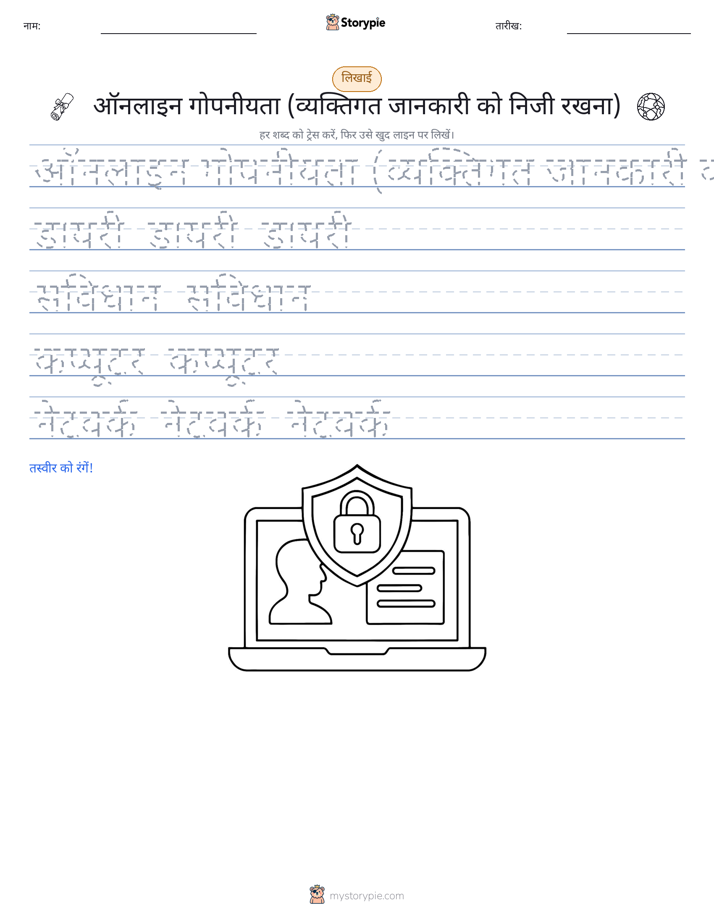 नाम:
Storypie
तारीख:
लिखाई
ऑनलाइन गोपनीयता (व्यक्तिगत जानकारी को निजी रखना)
हर शब्द को ट्रेस करें, फिर उसे खुद लाइन पर लिखें।
ऑनलाइन गोपनीयता (व्यक्तिगत जानकारी
डायरी डायरी डायरी
संविधान संविधान
कंप्यूटर कंप्यूटर
नेटवर्क नेटवर्क नेटवर्क
तस्वीर को रंगें!
mystorypie.com